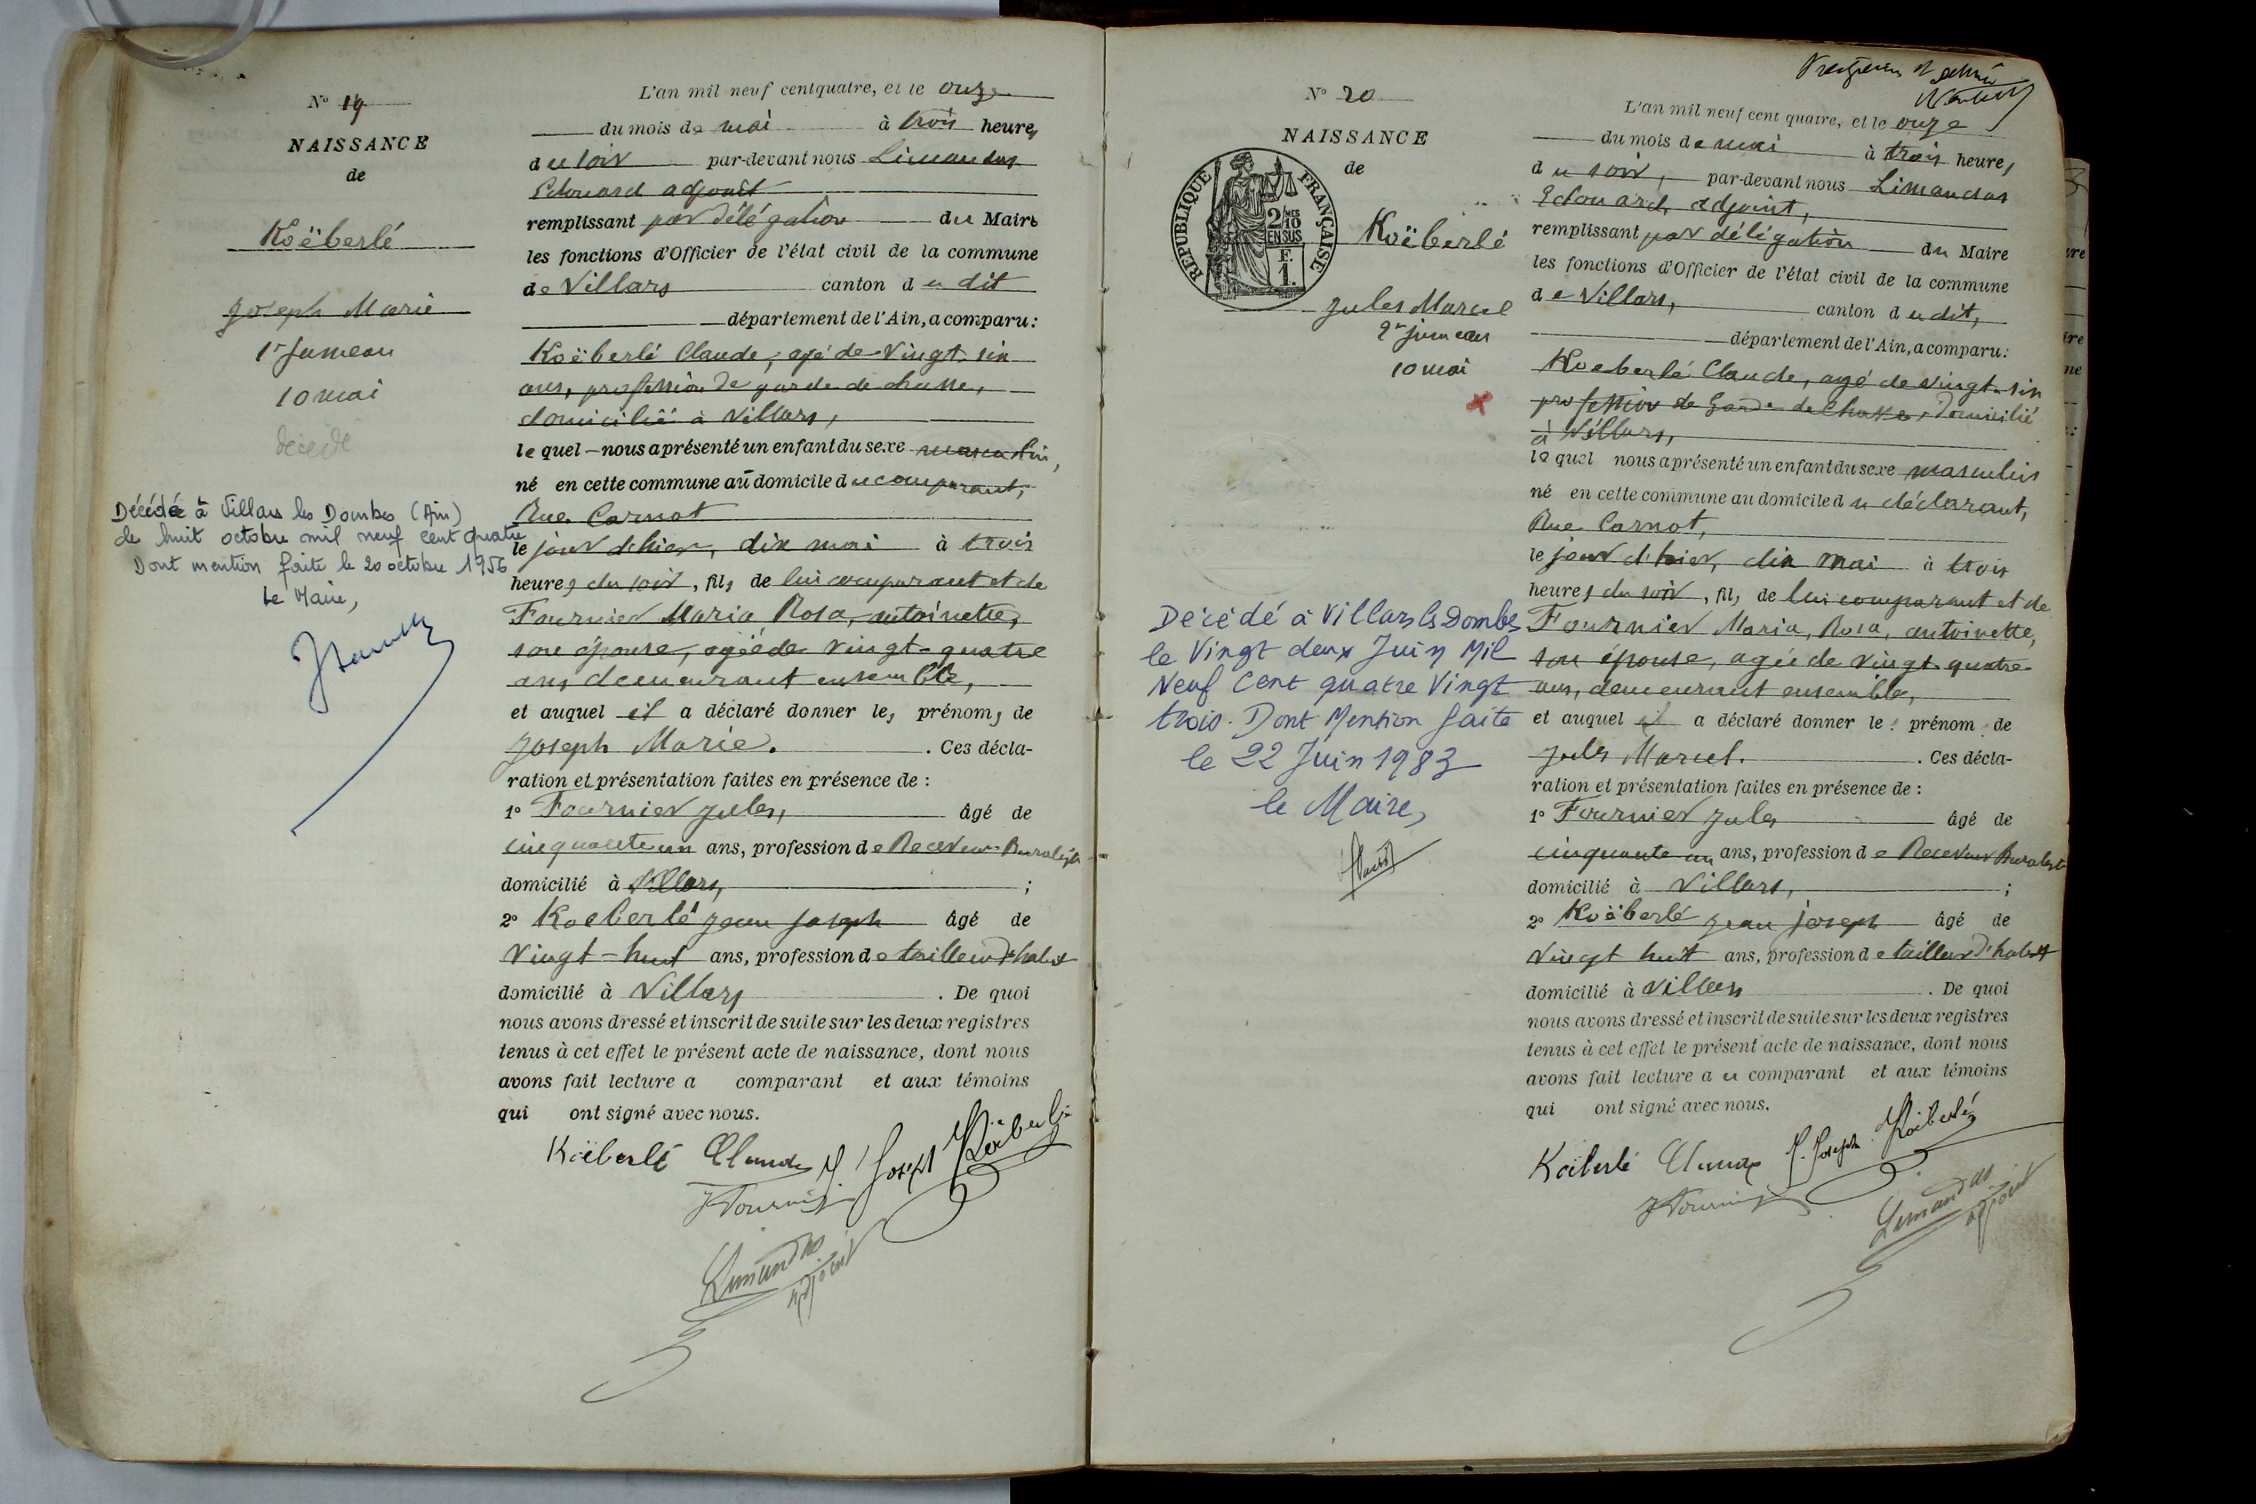 N° 19
NAISSANCE
de
Koëberlé
Joseph Marie
1r Jumeau
10 mai
décédé
Décédé à Villars les Dombes (Ain)
le huit octobre mil neuf cent quatre
Dont mention faite le 20 octobre 1956
Le Maire,
L'an mil neuf cent quatre, et le onze
du mois de mai à trois heures
du soir par-devant nous Limandas
Edouard adjoint
remplissant par délégation du Maire
les fonctions d'Officier de l'état civil de la commune
de Villars canton du dit
département de l'Ain, a comparu:
Koëberlé Claude, agé de Vingt-six
ans, profession de garde de chasse,
domicilié à Villars,
lequel nous a présenté un enfant du sexe masculin,
né en cette commune au domicile du comparant,
Rue Carnot
le jour d'hier, dix mai à trois
heures du soir, fils de lui comparant et de
Fournier Maria Rosa, antoinette,
son épouse, agée de vingt-quatre
ans demeurant ensemble,
et auquel il a déclaré donner les prénoms de
Joseph Marie. . Ces décla-
ration et présentation faites en présence de :
1° Fournier Jules, âgé de
cinquante un ans, profession de Receveur Buraliste
domicilié à Villars, ;
2° Koeberlé Jean Joseph âgé de
Vingt-huit ans, profession de tailleur d'habits
domicilié à Villars . De quoi
nous avons dressé et inscrit de suite sur les deux registres
tenus à cet effet le présent acte de naissance, dont nous
avons fait lecture a comparant et aux témoins
qui ont signé avec nous.
Koëberlé Claude J. Joseph Koëberlé
J Fournier
Limandas
adjoint
N° 20
NAISSANCE
de
RÉPUBLIQUE FRANÇAISE
2/10 MES
EN SUS
F.
1.
Koëberlé
Jules Marcel
2e jumeau
10 mai
Décédé à Villars ls Dombes
le Vingt deux Juin Mil
Neuf Cent quatre Vingt
trois. Dont Mention faite
le 22 Juin 1983
le Maire,
L'an mil neuf cent quatre, et le onze
du mois de mai à trois heures
du soir, par-devant nous Limandas
Edouard adjoint,
remplissant par délégation du Maire
les fonctions d'Officier de l'état civil de la commune
de Villars, canton du dit,
département de l'Ain, a comparu:
Koeberlé Claude, agé de vingt-six
profession de Garde de Chasse, domicilié
à Villars,
lequel nous a présenté un enfant du sexe masculin
né en cette commune au domicile du déclarant,
Rue Carnot,
le jour d'hier, dix mai à trois
heures du soir, fils de lui comparant et de
Fournier Maria, Rosa, antoinette,
son épouse, agée de vingt-quatre
ans, demeurant ensemble,
et auquel il a déclaré donner les prénoms de
Jules Marcel. . Ces décla-
ration et présentation faites en présence de :
1° Fournier Jules âgé de
cinquante un ans, profession de Receveur Buraliste
domicilié à Villars, ;
2° Koëberlé Jean joseph âgé de
Vingt huit ans, profession de tailleur d'habits
domicilié à Villars . De quoi
nous avons dressé et inscrit de suite sur les deux registres
tenus à cet effet le présent acte de naissance, dont nous
avons fait lecture au comparant et aux témoins
qui ont signé avec nous.
Koëberlé Claude J. Joseph Koëberlé
J Fournier
Limandas
adjoint